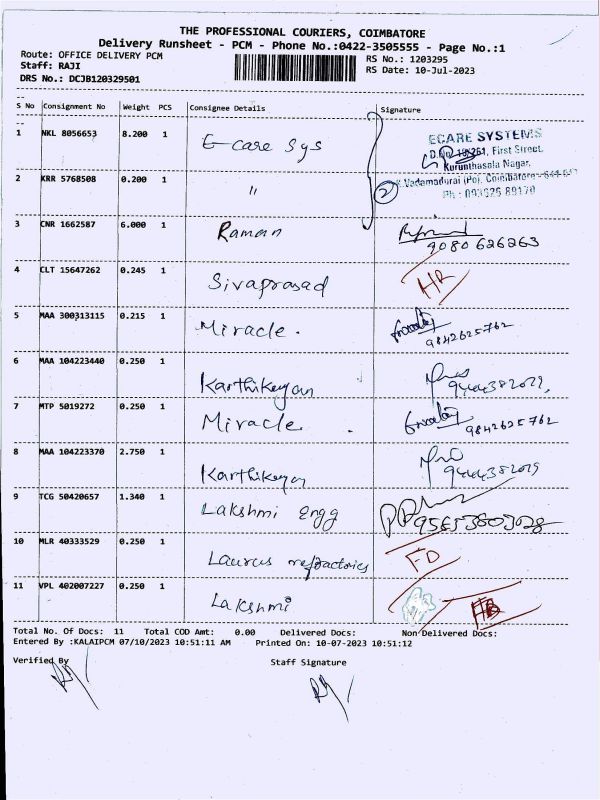 THE PROFESSIONAL COURIERS, COIMBATORE
Delivery Runsheet - PCM - Phone No.:0422-3505555 - Page No.:1
Route: OFFICE DELIVERY PCM
Staff: RAJI
DRS No.: DCJB120329501
RS No.: 1203295
RS Date: 10-Jul-2023
S No Consignment No Weight PCS Consignee Details Signature
1 NKL 8056653 8.200 1 E-care Sys
ECARE SYSTEMS
First Street,
Kurunthasala Nagar,
2 KRR 5768508 0.200 1 " 2
Vadamadurai (Po), Coimbatore
Ph : 093625 89170
3 CNR 1662587 6.000 1 Raman
9080 626263
4 CLT 15647262 0.245 1 Sivaprasad HR
5 MAA 300313115 0.215 1 Miracle.
9842625762
6 MAA 104223440 0.250 1 Karthikeyan
9444382029,
7 MTP 5019272 0.250 1 Miracle.
9842625762
8 MAA 104223370 2.750 1 Karthikeyan
9444382029
9 TCG 50420657 1.340 1 Lakshmi Engg
10 MLR 40333529 0.250 1 Laurus refractories FD
11 VPL 402007227 0.250 1 Lakshmi
Total No. Of Docs: 11 Total COD Amt: 0.00 Delivered Docs: Non Delivered Docs:
Entered By :KALAIPCM 07/10/2023 10:51:11 AM Printed On: 10-07-2023 10:51:12
Verified By Staff Signature